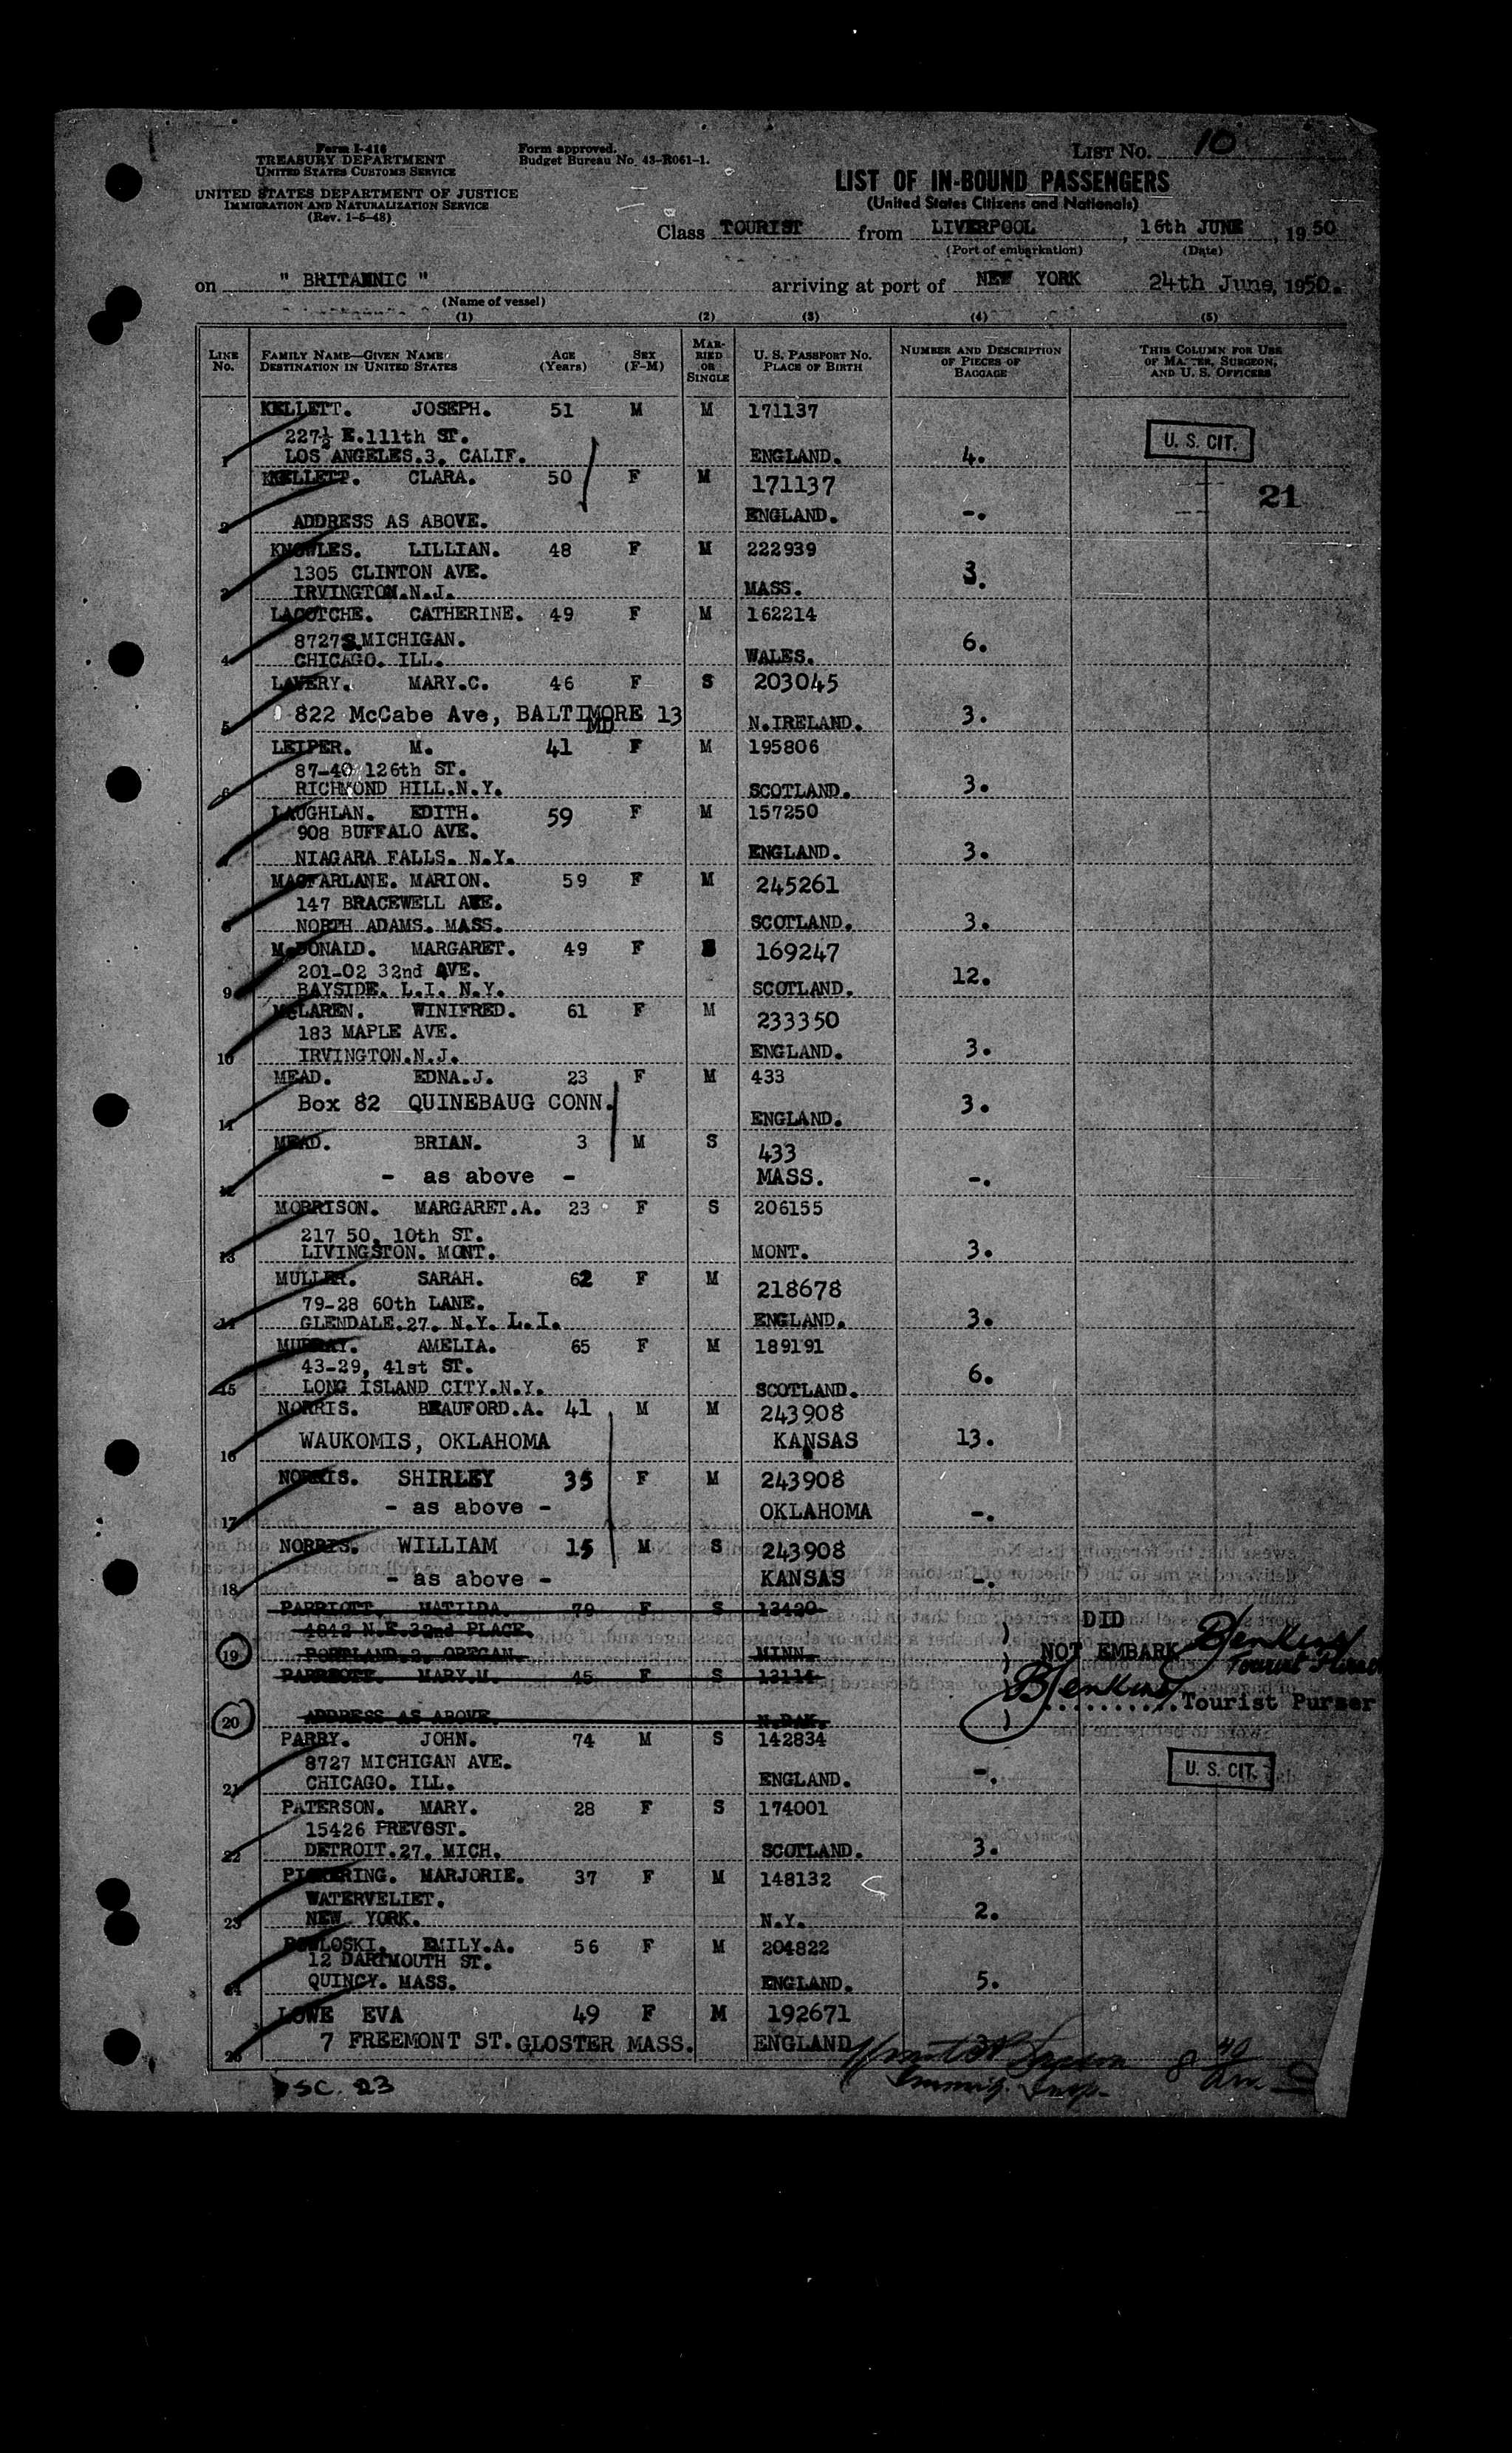 Form I-418
TREASURY DEPARTMENT
UNITED STATES CUSTOMS SERVICE
UNITED STATES DEPARTMENT OF JUSTICE
IMMIGRATION AND NATURALIZATION SERVICE
(Rev. 1-5-48)
Form approved.
Budget Bureau No. 43-R061-1.
LIST NO. 10
LIST OF IN-BOUND PASSENGERS
(United States Citizens and Nationals)
Class TOURIST from LIVERPOOL, 16th JUNE, 1950
(Port of embarkation) (Date)
on " BRITANNIC " arriving at port of NEW YORK 24th June, 1950.
(Name of vessel)
(1) (2) (3) (4) (5)
LINE NO. FAMILY NAME—GIVEN NAME DESTINATION IN UNITED STATES AGE (Years) SEX (F-M) MARRIED OR SINGLE U. S. PASSPORT NO. PLACE OF BIRTH NUMBER AND DESCRIPTION OF PIECES OF BAGGAGE THIS COLUMN FOR USE OF MASTER, SURGEON, AND U. S. OFFICERS
KELLETT. JOSEPH. 51 M M 171137
227½ E.111th ST.
1 LOS ANGELES.3. CALIF. ENGLAND. 4. U. S. CIT.
KELLETT. CLARA. 50 F M 171137
21
2 ADDRESS AS ABOVE. ENGLAND. -.
KNOWLES. LILLIAN. 48 F M 222939
1305 CLINTON AVE.
3 IRVINGTON.N.J. MASS. 3.
LACOTCHE. CATHERINE. 49 F M 162214
8727 S.MICHIGAN.
4 CHICAGO. ILL. WALES. 6.
LAVERY. MARY.C. 46 F S 203045
5 822 McCabe Ave, BALTIMORE 13 MD N.IRELAND. 3.
LEIPER. M. 41 F M 195806
87-40 126th ST.
6 RICHMOND HILL.N.Y. SCOTLAND. 3.
LAUGHLAN. EDITH. 59 F M 157250
908 BUFFALO AVE.
NIAGARA FALLS. N.Y. ENGLAND. 3.
MACFARLANE. MARION. 59 F M 245261
147 BRACEWELL AVE.
8 NORTH ADAMS. MASS. SCOTLAND. 3.
McDONALD. MARGARET. 49 F S 169247
201-02 32nd AVE.
9 BAYSIDE. L.I. N.Y. SCOTLAND. 12.
McLAREN. WINIFRED. 61 F M 233350
183 MAPLE AVE.
10 IRVINGTON.N.J. ENGLAND. 3.
MEAD. EDNA.J. 23 F M 433
Box 82 QUINEBAUG CONN.
11 ENGLAND. 3.
MEAD. BRIAN. 3 M S 433
12 - as above - MASS. -.
MORRISON. MARGARET.A. 23 F S 206155
217 50. 10th ST.
13 LIVINGSTON. MONT. MONT. 3.
MULLER. SARAH. 62 F M 218678
79-28 60th LANE.
14 GLENDALE.27. N.Y. L.I. ENGLAND. 3.
MURRAY. AMELIA. 65 F M 189191
43-29, 41st ST.
15 LONG ISLAND CITY.N.Y. SCOTLAND. 6.
NORRIS. BEAUFORD.A. 41 M M 243908
16 WAUKOMIS, OKLAHOMA KANSAS 13.
NORRIS. SHIRLEY 35 F M 243908
17 - as above - OKLAHOMA -.
NORRIS. WILLIAM 15 M S 243908
18 - as above - KANSAS -.
PARRIOTT. MATILDA. 79 F S 13420
4842 N.E.32nd PLACE.
19 PORTLAND.2. OREGAN. MINN.
DID
NOT EMBARK BJenkins
Tourist Purser
PARRIOTT. MARY.M. 45 F S 13114
BJenkins
..........Tourist Purser
20 ADDRESS AS ABOVE. N.DAK.
PARRY. JOHN. 74 M S 142834
8727 MICHIGAN AVE.
21 CHICAGO. ILL. ENGLAND. -. U. S. CIT.
PATERSON. MARY. 28 F S 174001
15426 PREVOST.
22 DETROIT.27. MICH. SCOTLAND. 3.
PICKERING. MARJORIE. 37 F M 148132
WATERVELIET.
23 NEW YORK. N.Y. 2.
POWLOSKI. EMILY.A. 56 F M 204822
12 DARTMOUTH ST.
24 QUINCY. MASS. ENGLAND. 5.
LOWE EVA 49 F M 192671
25 7 FREEMONT ST. GLOSTER MASS. ENGLAND 3.
Immig. Insp.
SC. 23